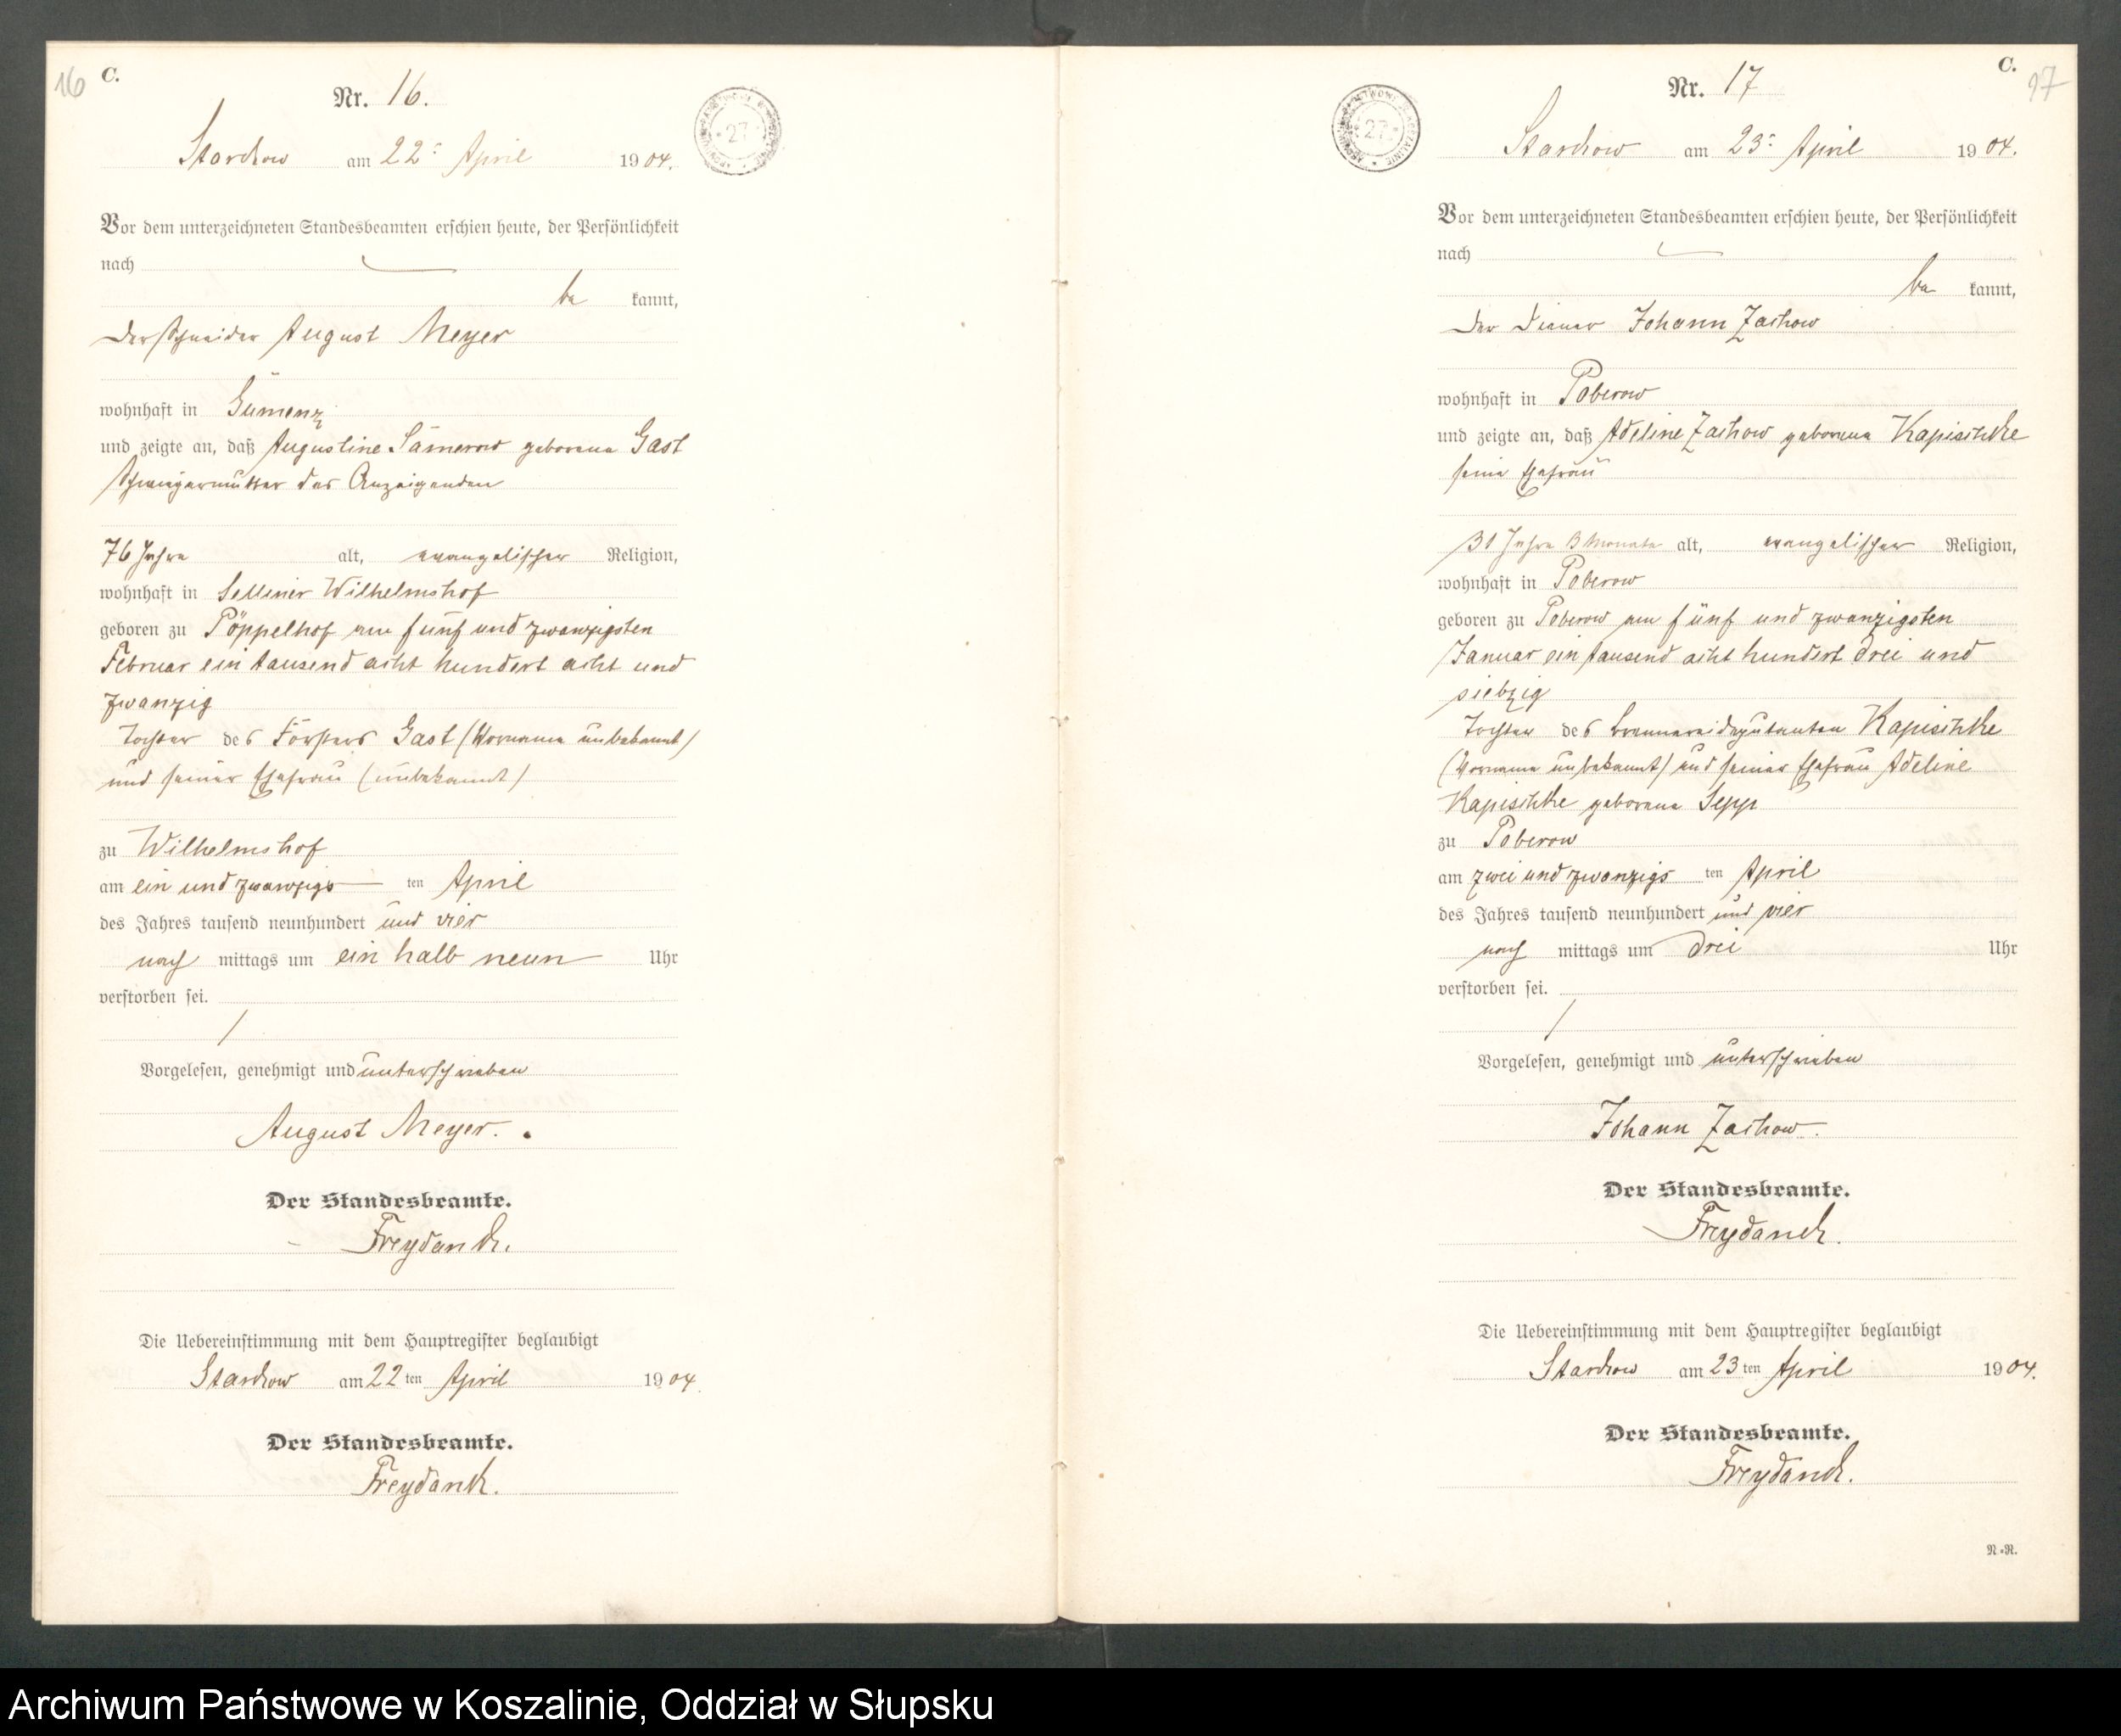 16
C.
Nr. 16.
Starckow am 22ᵗ April 1904.
Vor dem unterzeichneten Standesbeamten erschien heute, der Persönlichkeit
nach
be kannt,
der Schneider August Meyer
wohnhaft in Gumenz
und zeigte an, daß Augustine Samerow geborene Gast
Schwiegermutter des Anzeigenden
76 Jahre alt, evangelischer Religion,
wohnhaft in Selliner Wilhelmshof
geboren zu Pöppelhof am fünf und zwanzigsten
Februar ein tausend acht hundert acht und
zwanzig
Tochter des Försters Gast (Vorname unbekannt)
und seiner Ehefrau (unbekannt)
zu Wilhelmshof
am ein und zwanzigs ten April
des Jahres tausend neunhundert und vier
nach mittags um ein halb neun Uhr
verstorben sei.
Vorgelesen, genehmigt und unterschrieben
August Meyer.
Der Standesbeamte.
Freydanck.
Die Uebereinstimmung mit dem Hauptregister beglaubigt
Starckow am 22 ten April 1904.
Der Standesbeamte.
Freydanck.
C.
17
Nr. 17
27
Starckow am 23ᵗ April 1904.
Vor dem unterzeichneten Standesbeamten erschien heute, der Persönlichkeit
nach
be kannt,
der Diener Johann Zachow
wohnhaft in Poberow
und zeigte an, daß Adeline Zachow geborene Kapischke
seine Ehefrau
31 Jahre 3 Monate alt, evangelischer Religion,
wohnhaft in Poberow
geboren zu Poberow am fünf und zwanzigsten
Januar ein tausend acht hundert drei und
siebzig
Tochter des Brennereideputanten Kapischke
(Vorname unbekannt) und seiner Ehefrau Adeline
Kapischke geborene Sepp
zu Poberow
am zwei und zwanzigs ten April
des Jahres tausend neunhundert und vier
nach mittags um drei Uhr
verstorben sei.
Vorgelesen, genehmigt und unterschrieben
Johann Zachow.
Der Standesbeamte.
Freydanck.
Die Uebereinstimmung mit dem Hauptregister beglaubigt
Starckow am 23 ten April 1904.
Der Standesbeamte.
Freydanck.
N.R.
Archiwum Państwowe w Koszalinie, Oddział w Słupsku